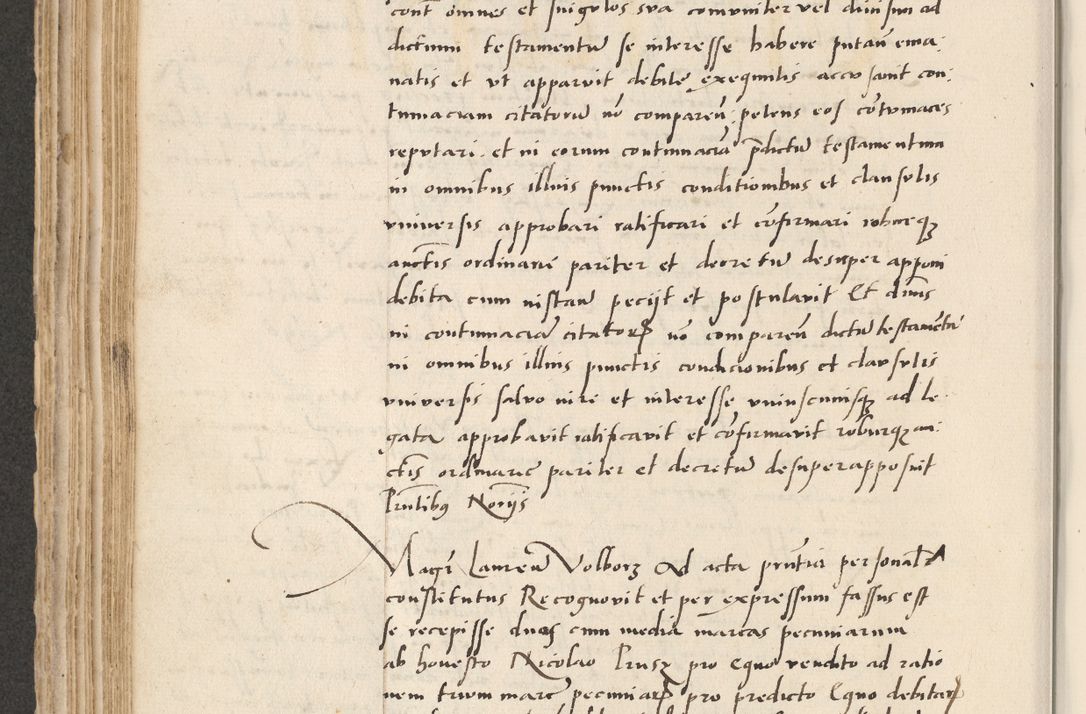 cont omnes et singulos sua comuniter vel divisim ad
dictum testamentū se interesse habere putan̄ ema
natis et ut apparuit debite exequutis accusavit con
tumaciam citatorū nō comparen̄ petens eos cōtumaces
reputari et in eorum contumaciā p̄dictū testamentum
in omnibus illius punctis conditionibus et clausulis
universis approbari ratificari et cōfirmari roburqȝ
auctis ordinarie pariter et decretū desuper apponi
debita cum instan̄ peciit et postulavit Et dn̄us
in contumaciā citatorꝝ nō comparen̄ dictū testamētū
in omnibus illius punctis condicionibus et clausulis
universis salvo iure et interesse uniuscuiusqȝ ad le
gata approbavit ratificavit et cōfirmavit roburqȝ au
ctis ordinarie pariter et decretū desuper apposuit
Pn̄tibus Nori̅js
Magr̄ Lauren̄ Volborz Ad acta pn̄tia personalr
constitutus Recognovit et per expressum fassus est
se recepisse duas cum media marcas pecuniarum
ab honesto Nicolao Prusz pro Equo vendito ad ratio
nem trium marc̄ pecuniarꝝ pro predicto Equo debitarꝝ